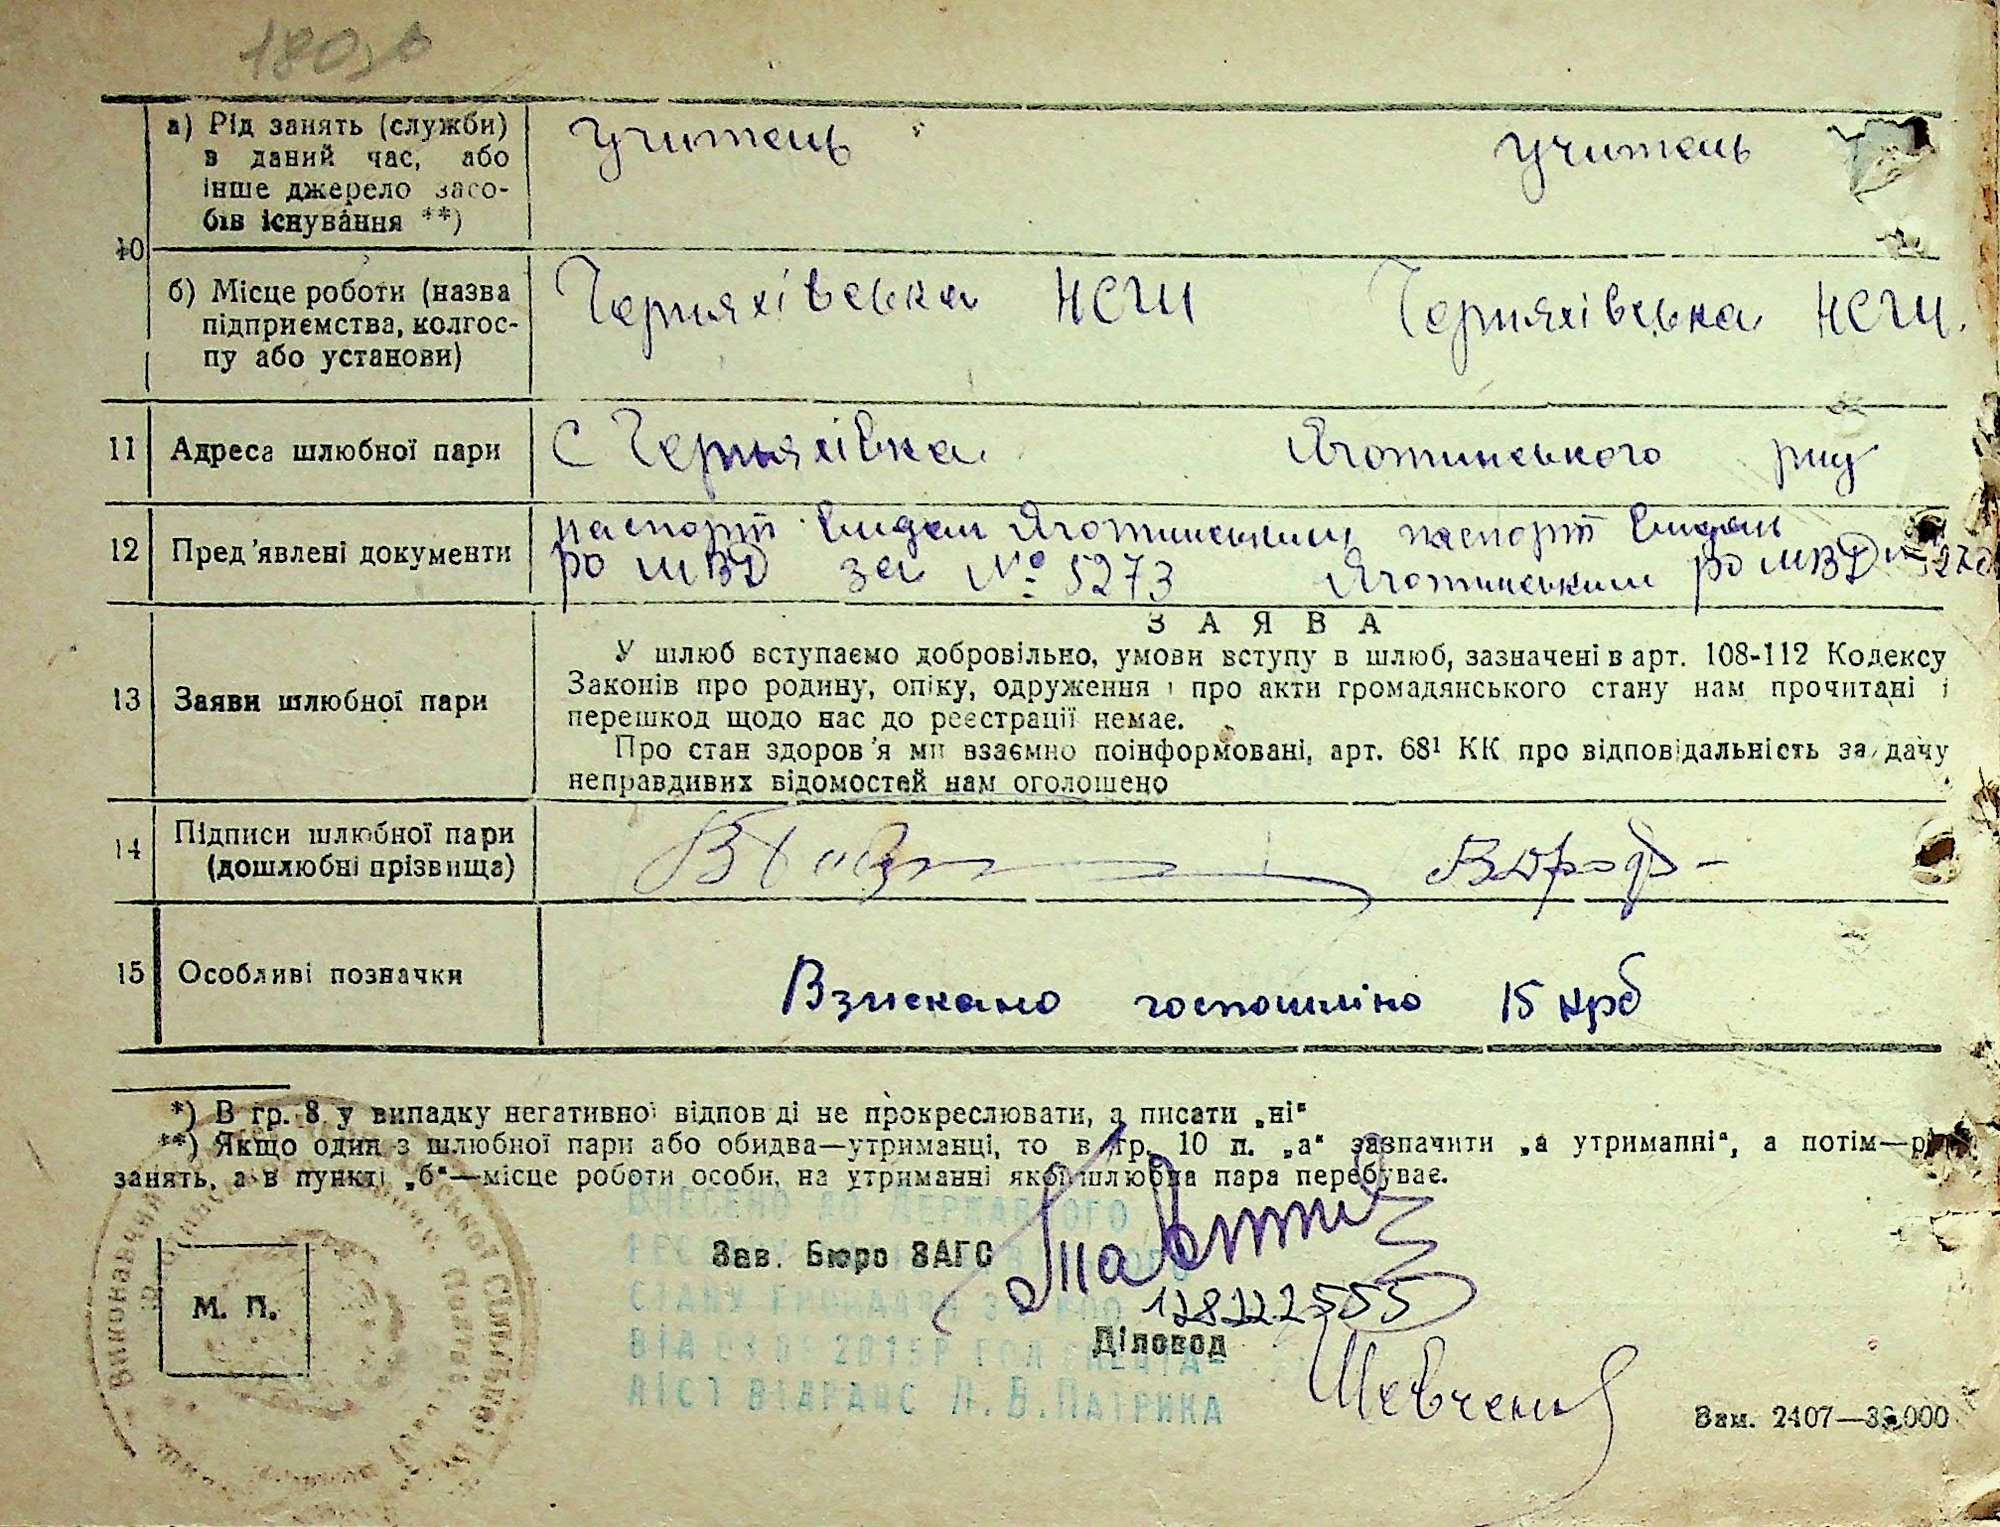 а) Рід занять (служби) в даний час, або інше джерело засобів існування **)
учитель учитель
10
б) Місце роботи (назва підприємства, колгоспу або установи)
Черняхівська НСШ Черняхівська НСШ.
11 Адреса шлюбної пари С Черняхівка Яготинського р-ну
12 Пред'явлені документи
паспорт видан Яготинським паспорт видан
РО МВД за № 5273 Яготинським РО МВД
З А Я В А
13 Заяви шлюбної пари
У шлюб вступаємо добровільно, умови вступу в шлюб, зазначені в арт. 108-112 Кодексу
Законів про родину, опіку, одруження і про акти громадянського стану нам прочитані і
перешкод щодо нас до реєстрації немає.
Про стан здоров'я ми взаємно поінформовані, арт. 68¹ КК про відповідальність за дачу
неправдивих відомостей нам оголошено
14 Підписи шлюбної пари
(дошлюбні прізвища)
15 Особливі позначки Взискано госпошліно 15 крб
*) В гр. 8 у випадку негативної відповіді не прокреслювати, а писати „ні“
**) Якщо один з шлюбної пари або обидва—утриманці, то в гр. 10 п. „а“ зазначити „а утриманні“, а потім—рід
занять, а в пункті „б“—місце роботи особи, на утриманні якої шлюбна пара перебуває.
ВНЕСЕНО ДО ДЕРЖАВНОГО
Зав. Бюро ЗАГС
М. П.
СТАНУ ГРОМАДЯН ЗА
128222555
Діловод
ВІД
Шевченко
ЛІСТ ВІДРАЦС Л.В.ПАТРИКА
Зам. 2407—33.000